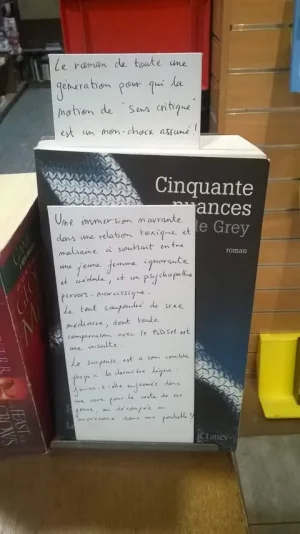 Le roman de toute une
génération pour qui la
notion de "sens critique"
est un non-choix assumé !
Cinquante
nuances
de Grey
roman
Une immersion navrante
dans une relation toxique et
malsaine à souhait entre
une jeune femme ignorante
et crédule, et un psychopathe
pervers-narcissique.
Le tout saupoudré de sexe
médiocre, dont toute
comparaison avec le BDSM est
une insulte.
Le suspense est à son comble
jusqu'à la dernière ligne :
finira-t-elle enfermée dans
une cave pour le reste de ses
jours, ou découpée en
morceaux dans une poubelle ?
JC Lattès
FEAST